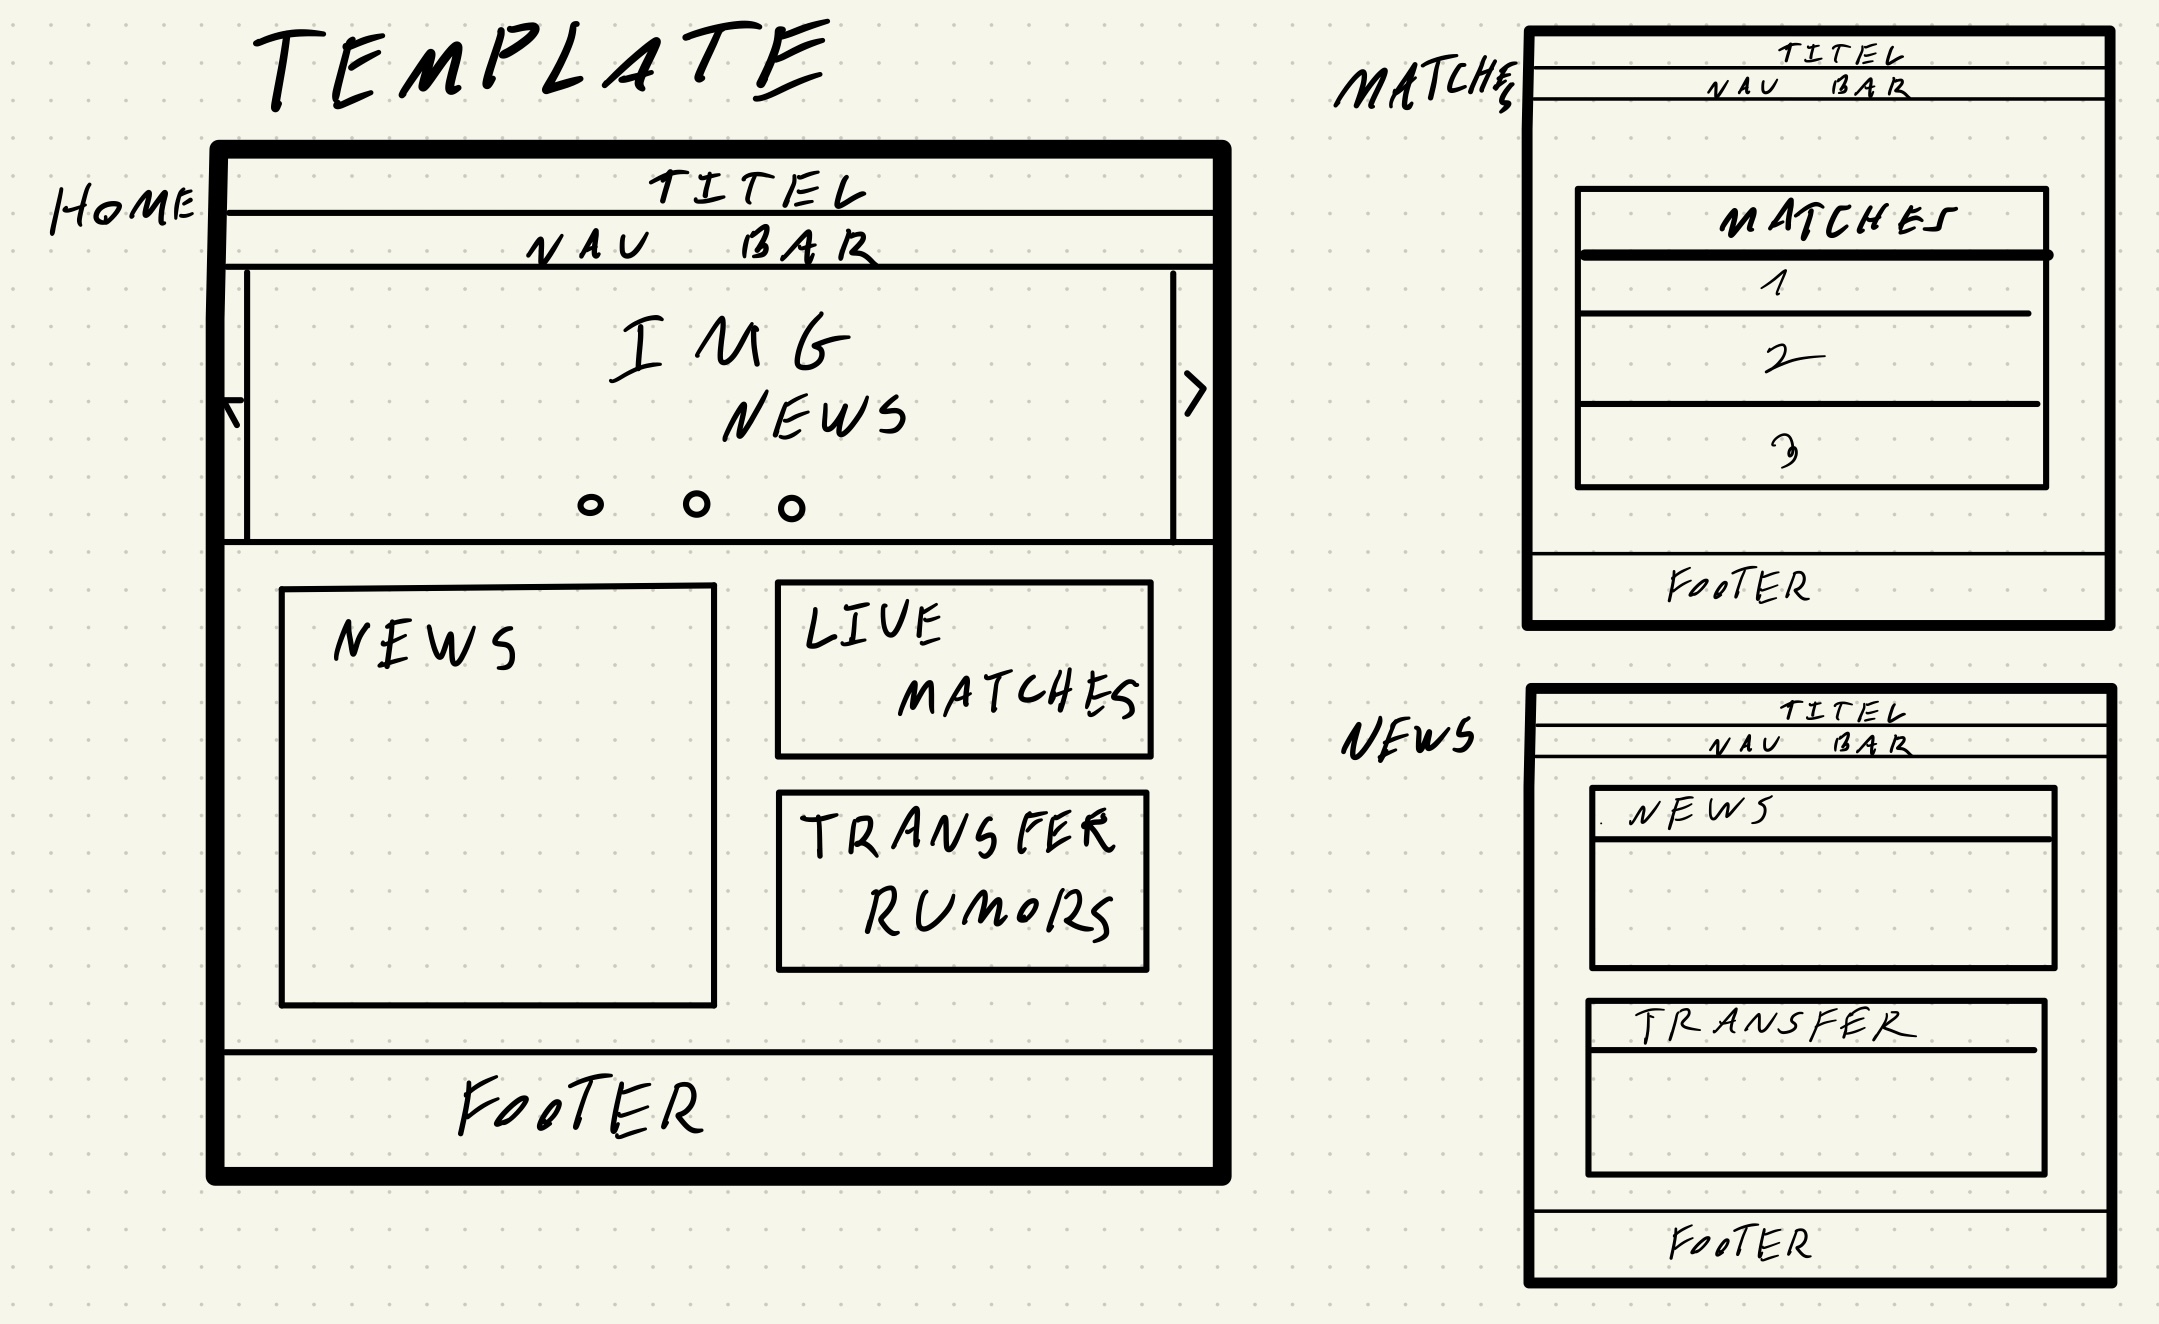 TEMPLATE
HOME
TITEL
NAV BAR
IMG
NEWS
NEWS
LIVE
MATCHES
TRANSFER
RUMORS
FOOTER
MATCHES
TITEL
NAV BAR
MATCHES
1
2
3
FOOTER
NEWS
TITEL
NAV BAR
NEWS
TRANSFER
FOOTER